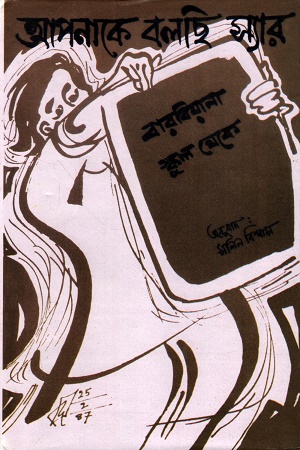 আপনাকে বলছি স্যার
বারবিয়ানা
স্কুল থেকে
অনুবাদ :
সলিল বিশ্বাস
25
2
87